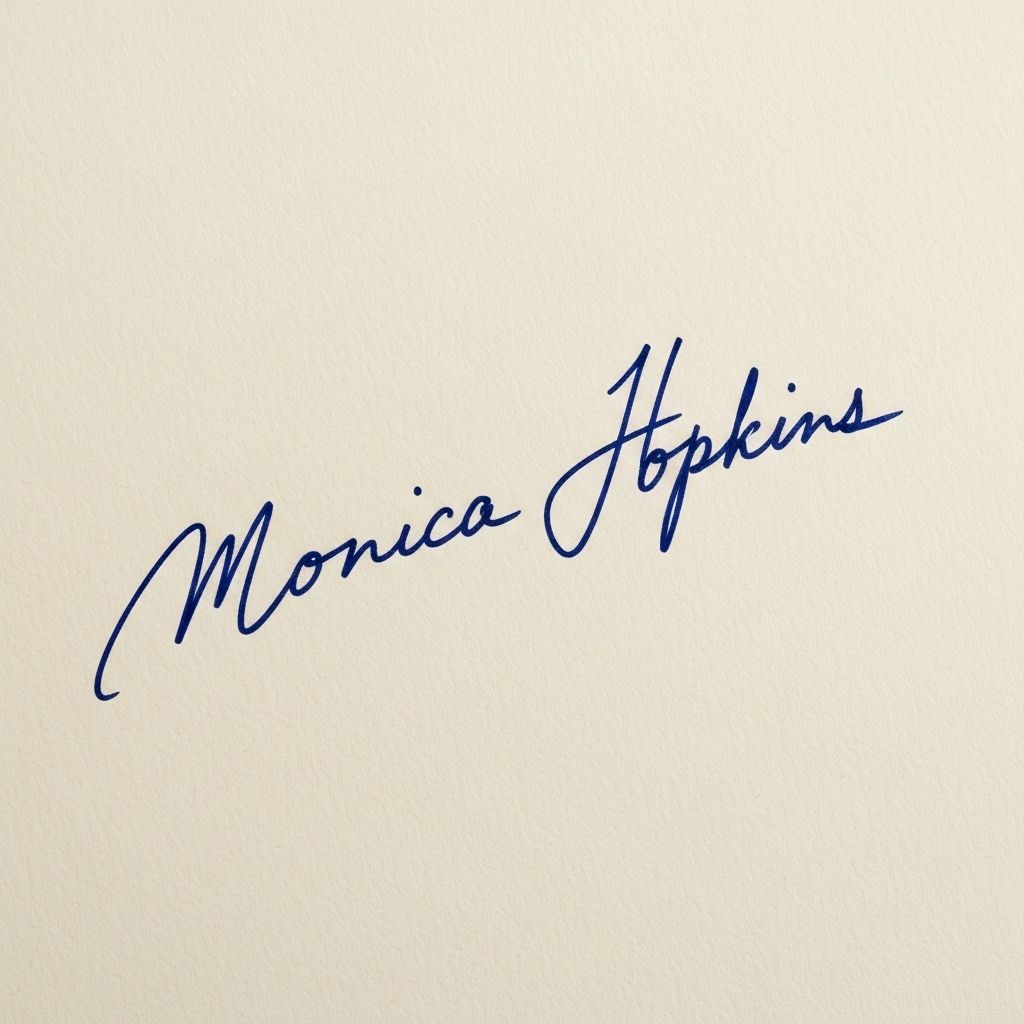 Monica Hopkins